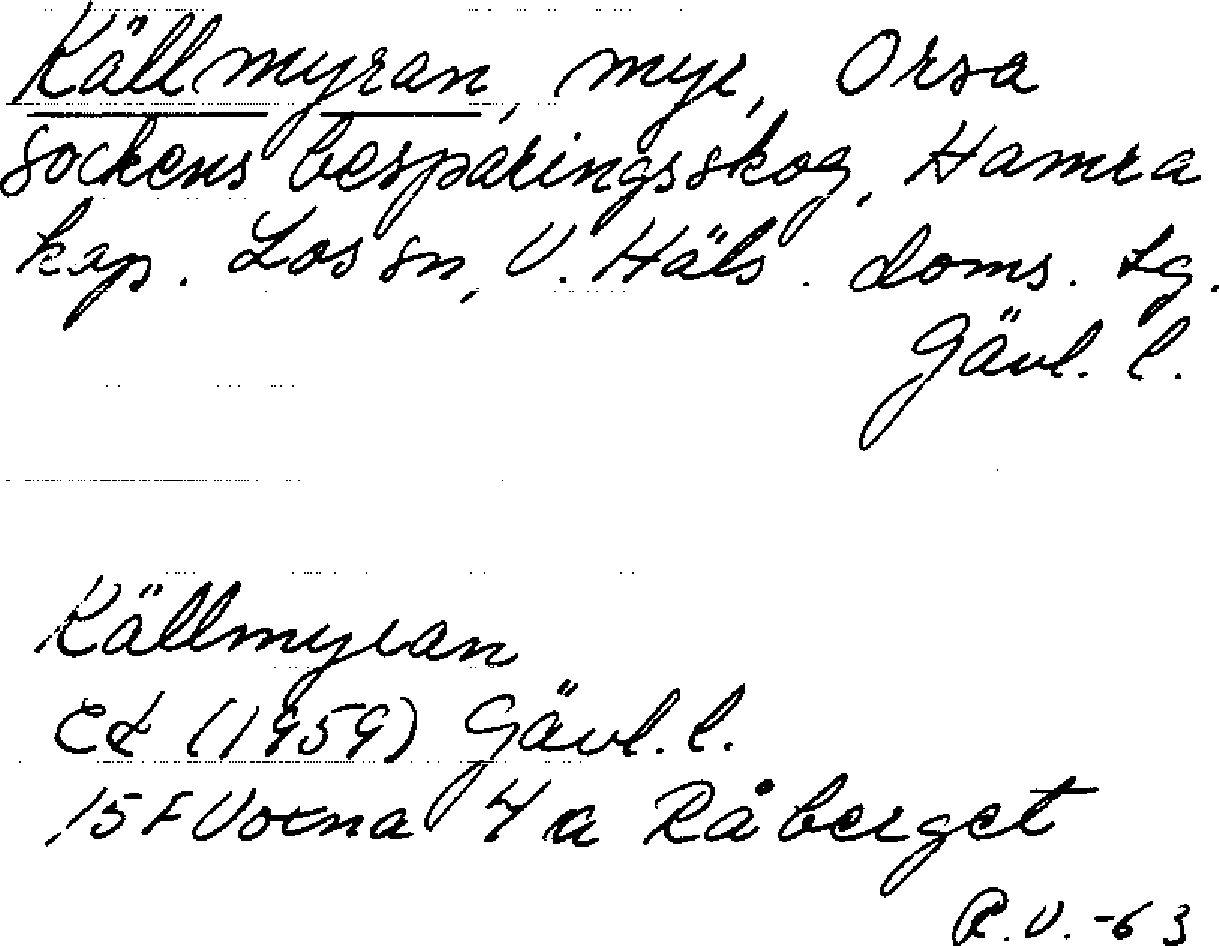 Källmyran, myr, Orsa
sockens besparingsskog, Hamra
kap. Los sn, V. Häls. doms. tg.
Gävl. l.
Källmyran
Ek (1959) Gävl. l.
15F Voxna 4 a Råberget
R.V. -63